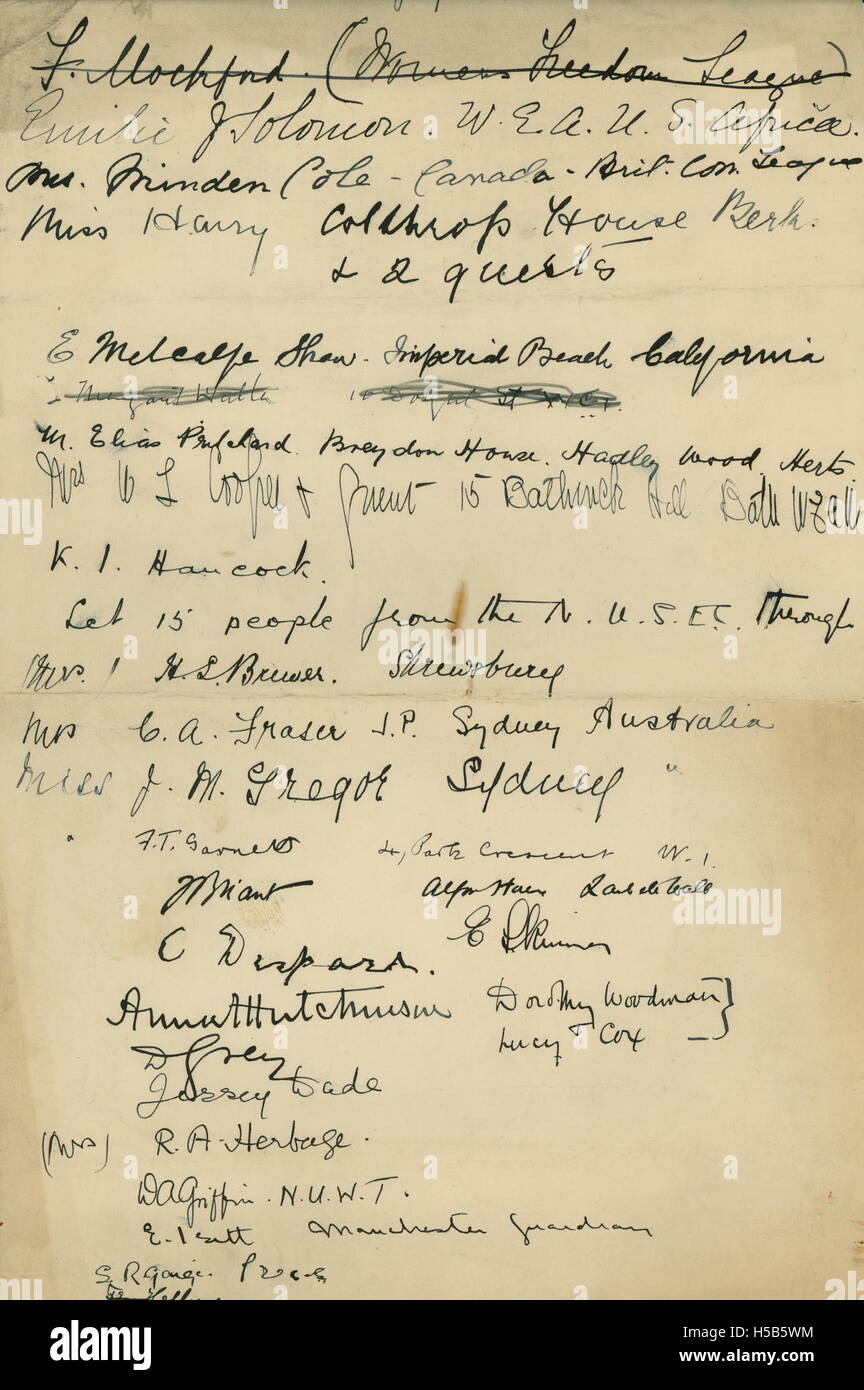 F. Mockford. (Womens Freedom League)
Emilie J Solomon. W. E. A. U. S. Africa.
Mrs. Minden Cole - Canada - Brit. Com. League
Miss Henry Colthrop House Berk.
& 2 guests
E Metcalfe Shaw. Imperial Beach California
Margaret St W.C.1.
M. Elias Pritchard. Breydon House. Hadley Wood. Herts
Mrs W L Cooper & Guest 15 Bathwick Hill Bath
K. I. Hancock.
Let 15 people from the N. U. S. E. C. through
(Mrs.) H. L. Brewer. Shrewsbury
Mrs C. A. Fraser J.P. Sydney Australia
Miss J. M. Gregor Sydney "
" F. T. Garnett 4, Park Crescent W. 1.
C Despard. E Skinner
Anna Hutchinson Dorothy Woodman }
D Grey Lucy Cox
Wade
(Mrs) R. A. Herbage.
D A Griffin. N. U. W. T.
E. Manchester Guardian
S. R. Press
alamy
alamy
a
a
alamy
Image ID: H5B5WM
www.alamy.com